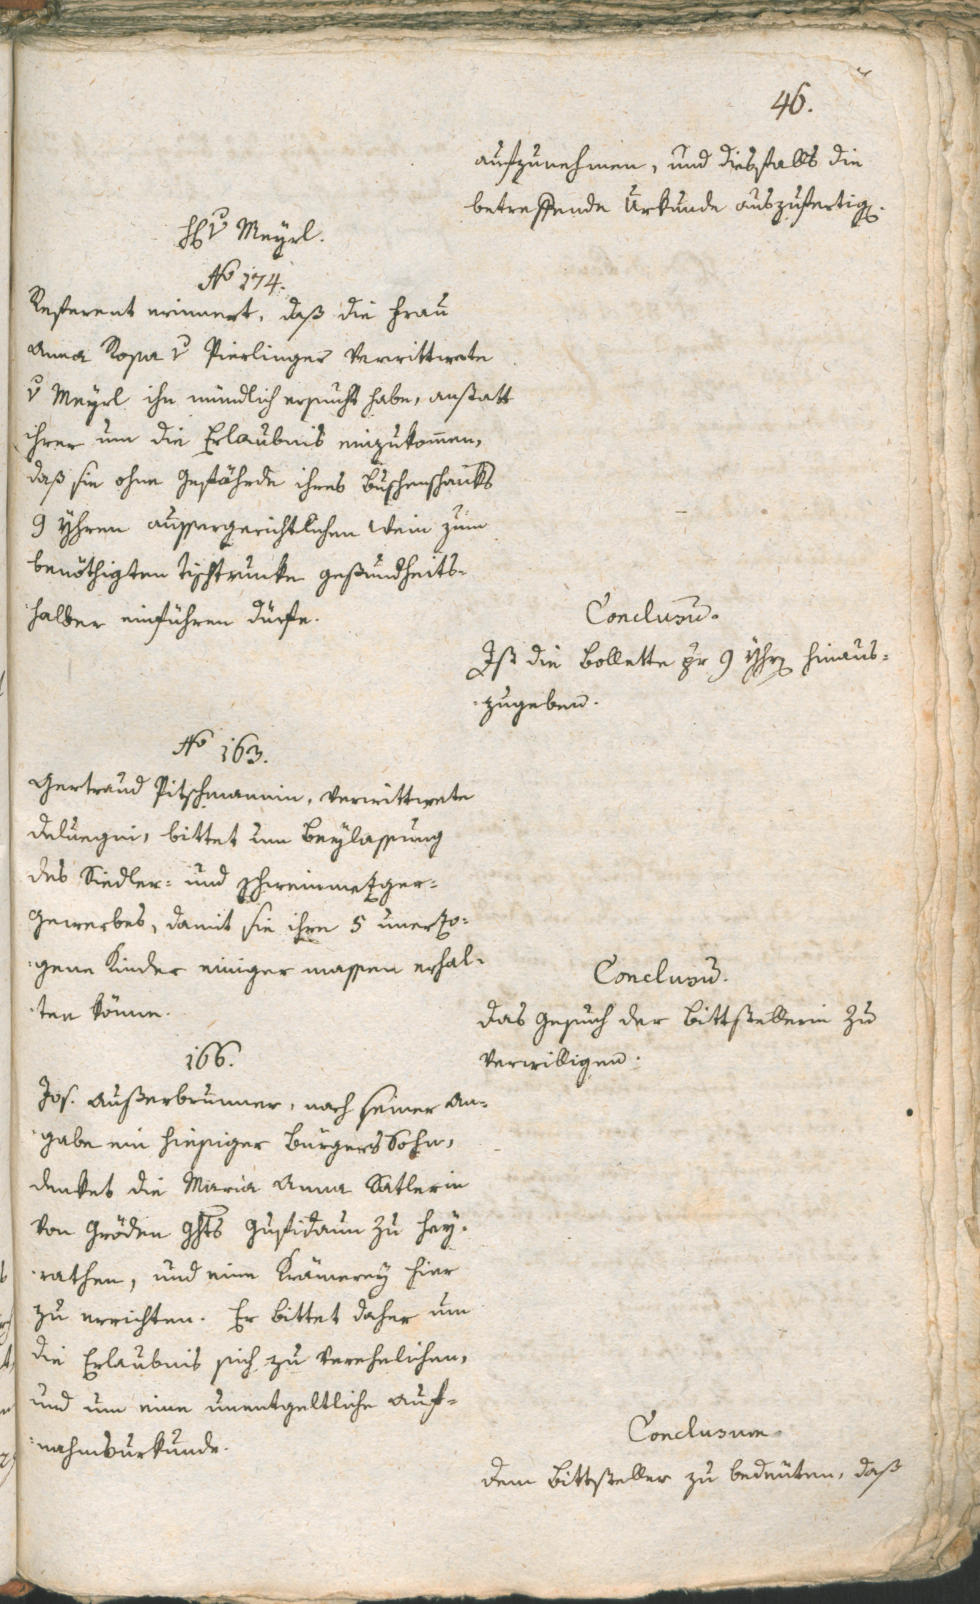 46.
aufzunehmen, und diesfalls die
betreffende Urkunde auszufertig.
H v Meyrl.
No 174.
Referent erinnert, daß die Frau
Anna Rosa v Pierlinger verwittwete
v Meyrl ihn mündlich ersucht habe, anstatt
ihrer um die Erlaubnis einzukomen,
daß sie ohne Gefährde ihres Buschenschanks
9 Yhren aussergerichtlichen Wein zum
benöthigten Tischtrunke gesundheits-
halber einführen dürfe.
Conclusu.
Ist die Bollette pr 9 Yhr hinaus-
zugeben.
No 163.
Gertraud Pitschmannin, verwittwete
Deluegin, bittet um Beylassung
des Siedler- und Schweinmetzger-
gewerbes, damit sie ihre 5 unerzo-
gene Kinder einiger massen erhal-
ten könne.
Conclusu.
Das Gesuch der Bittstellerin zu
verwilligen.
166.
Jos. Außerbrunner, nach seiner An-
gabe ein hiesiger Bürgers Sohn,
denket die Maria Anna Satlerin
von Gröden Ghts Gufidaun zu hey-
rathen, und eine Krämerey hier
zu errichten. Er bittet daher um
die Erlaubnis sich zu verehelichen,
und um eine unentgeltliche Auf-
nahmsurkunde.
Conclusum.
Dem Bittsteller zu bedeuten, daß